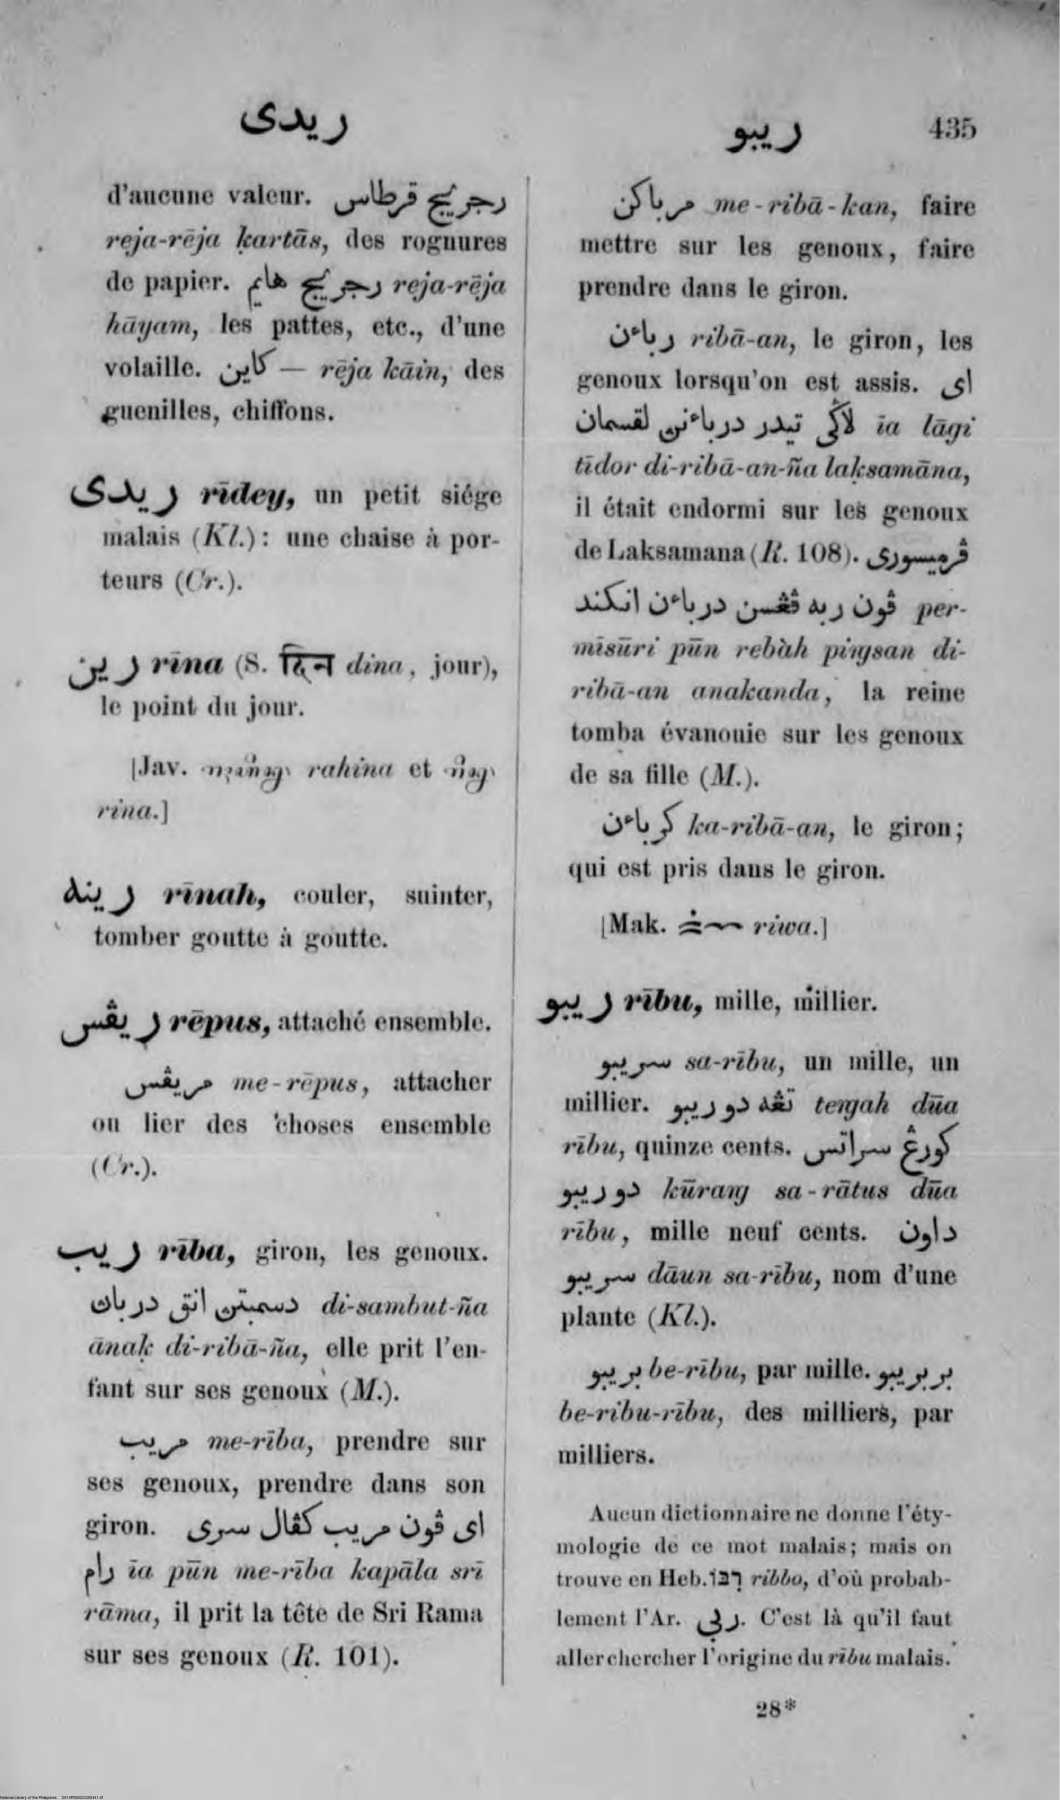 ريدى
ريبو 435
d'aucune valeur. رجريج قرطاس
reja-rēja ḳartās, des rognures
de papier. رجريج هايم reja-rēja
hāyam, les pattes, etc., d'une
volaille. كاين — rēja kāin, des
guenilles, chiffons.
ريدى rīdey, un petit siége
malais (Kl.): une chaise à por-
teurs (Cr.).
رين rīna (S. दिन dina, jour),
le point du jour.
[Jav. rahina et
rina.]
رينه rīnah, couler, suinter,
tomber goutte à goutte.
ريڤس rēpus, attaché ensemble.
مريڤس me-rēpus, attacher
ou lier des choses ensemble
(Cr.).
ريب rība, giron, les genoux.
دسمبتن انق درباڽ di-sambut-ña
ānaḳ di-ribā-ña, elle prit l'en-
fant sur ses genoux (M.).
مريب me-rība, prendre sur
ses genoux, prendre dans son
giron. اى ڤون مريب كڤال سرى
رام īa pūn me-rība kapāla srī
rāma, il prit la tête de Sri Rama
sur ses genoux (R. 101).
مرباكن me-ribā-kan, faire
mettre sur les genoux, faire
prendre dans le giron.
رباءن ribā-an, le giron, les
genoux lorsqu'on est assis. اى
لاڬى تيدر درباءنڽ لقسمان īa lāgi
tīdor di-ribā-an-ña laḳsamāna,
il était endormi sur les genoux
de Laksamana (R. 108). ڤرميسورى
ڤون ربه ڤڠسن درباءن انكند per-
mīsūri pūn rebàh piŋsan di-
ribā-an anakanda, la reine
tomba évanouie sur les genoux
de sa fille (M.).
كرباءن ka-ribā-an, le giron;
qui est pris dans le giron.
[Mak. riwa.]
ريبو rību, mille, millier.
سريبو sa-rību, un mille, un
millier. تڠه دو ريبو teŋah dūa
rību, quinze cents. كورڠ سراتس
دو ريبو kūraŋ sa-rātus dūa
rību, mille neuf cents. داون
سريبو dāun sa-rību, nom d'une
plante (Kl.).
بريبو be-rību, par mille. بربريبو
be-ribu-rību, des milliers, par
milliers.
Aucun dictionnaire ne donne l'éty-
mologie de ce mot malais; mais on
trouve en Heb. רבו ribbo, d'où probab-
lement l'Ar. ربى. C'est là qu'il faut
aller chercher l'origine du rību malais.
28*